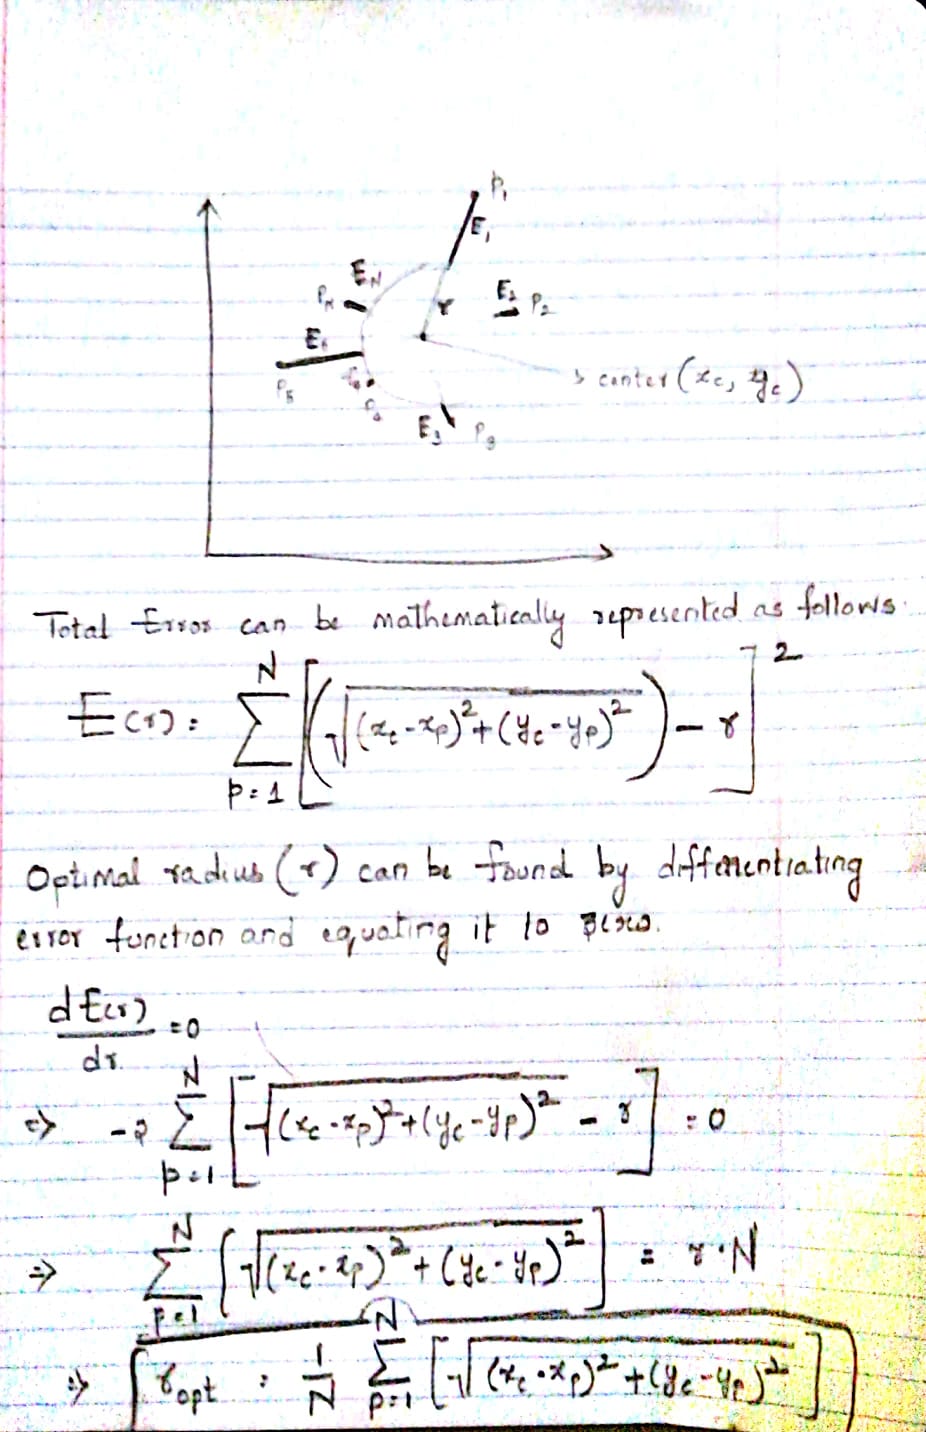 P₁
E₁
E_N
P_N
r
E₂ P₂
E₅
P₅
P₄
E₃ P₃
center (x_c, y_c)
Total Error can be mathematically represented as follows:
E(r) = \sum_{p=1}^{N} [(\sqrt{(x_c-x_p)^2+(y_c-y_p)^2}) - r]^2
Optimal radius (r) can be found by differentiating
error function and equating it to zero.
\frac{dE(r)}{dr} = 0
⇒ -2 \sum_{p=1}^{N} [\sqrt{(x_c-x_p)^2+(y_c-y_p)^2} - r] = 0
⇒ \sum_{p=1}^{N} [\sqrt{(x_c-x_p)^2+(y_c-y_p)^2}] = r·N
⇒ r_{opt} = \frac{1}{N} \sum_{p=1}^{N} [\sqrt{(x_c-x_p)^2+(y_c-y_p)^2}]